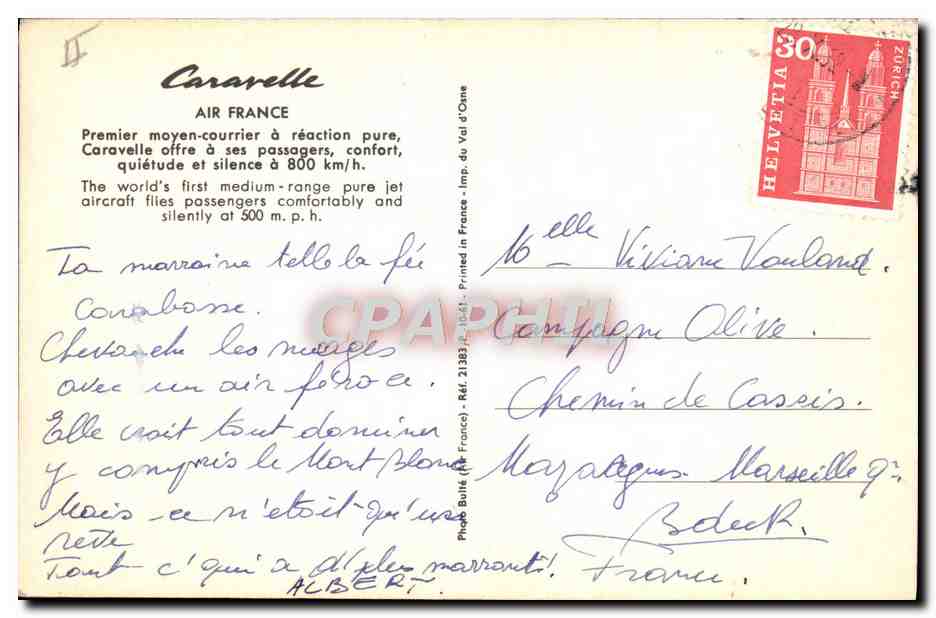 II
Caravelle
AIR FRANCE
Premier moyen-courrier à réaction pure,
Caravelle offre à ses passagers, confort,
quiétude et silence à 800 km/h.
The world's first medium-range pure jet
aircraft flies passengers comfortably and
silently at 500 m. p. h.
Ta marraine telle la fée
Carabosse.
Chevauche les nuages
avec un air féroce.
Elle croit tout dominer
y compris le Mont Blanc
Mais ce n'était qu'une
reve
Tout c'qui a d'plus marrant!
ALBERT.
Photo Bulté (Air France) - Réf. 21383 P. 10-61 - Printed in France - Imp. du Val d'Osne
CPAPHIL
HELVETIA
30
ZÜRICH
Melle Viviane
Campagne Olive.
Chemin de Cassis.
Mazargues Marseille 9e
BduR.
France.